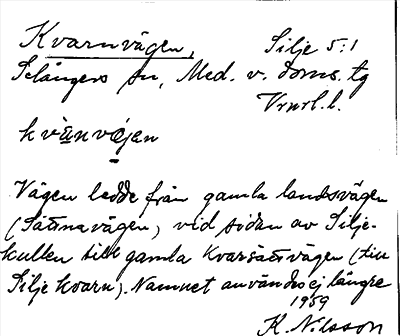 Kvarnvägen, Silje 5:1
Selångers sn, Med. v. doms. tg
Vnrl. l.
kvänvejen
Vägen ledde från gamla landsvägen
(Sättnavägen) vid sidan av Silje-
kullen till gamla Kvarsättvägen (till
Silje kvarn). Namnet användes ej längre
1959
K. Nilsson